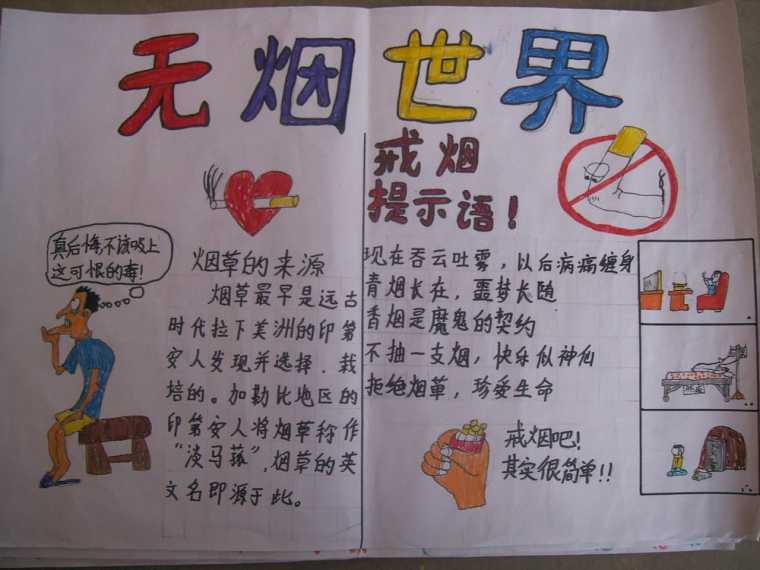 无烟世界
真后悔不该吸上
这可恨的毒!
烟草的来源
烟草最早是远古
时代拉下美洲的印第
安人发现并选择.栽
培的。加勒比地区的
印第安人将烟草称作
“淡马菰”,烟草的英
文名即源于此。
戒烟
提示语!
现在吞云吐雾,以后病痛缠身
青烟长在,噩梦长随
香烟是魔鬼的契约
不抽一支烟,快乐似神仙
拒绝烟草,珍爱生命
戒烟吧!
其实很简单!!